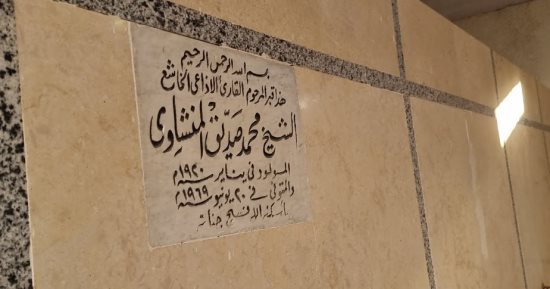 بسم الله الرحمن الرحيم
هذا قبر المرحوم القارئ الاذاعى الخاشع
الشيخ محمد صديق المنشاوى
المولود فى يناير سنة ١٩٢٠م
والمتوفى فى ٢٠ يونيو سنة ١٩٦٩م
اسكنه الله فسيح جناته